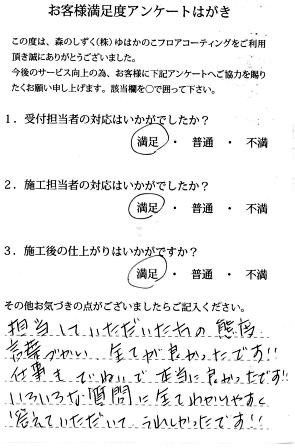 お客様満足度アンケートはがき
この度は、森のしずく(株)ゆはかのこフロアコーティングをご利用
頂き誠にありがとうございました。
今後のサービス向上の為、お客様に下記アンケートへご協力を賜り
たくお願い申し上げます。該当欄を○で囲って下さい。
1．受付担当者の対応はいかがでしたか？
満足 ・ 普通 ・ 不満
2．施工担当者の対応はいかがでしたか？
満足 ・ 普通 ・ 不満
3．施工後の仕上がりはいかがですか？
満足 ・ 普通 ・ 不満
その他お気づきの点がございましたらご記入ください。
担当していただいた方の態度
言葉づかい 全てが良かったです!!
仕事もていねいで本当に良かったです!!
いろいろな質問に全てわかりやすく
答えていただいて うれしかったです!!